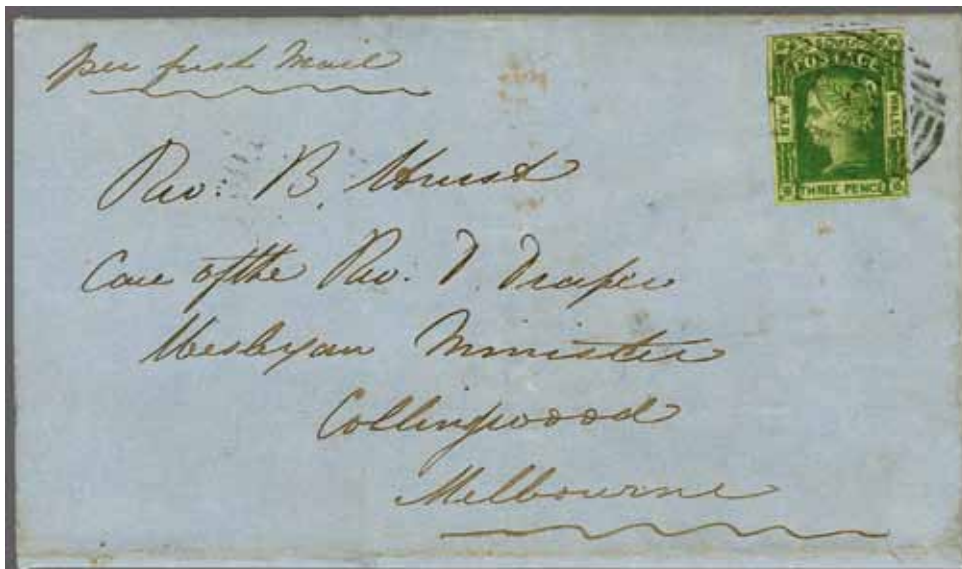 per first Mail
POSTAGE
NEW
WALES
THREE PENCE
Rev. B. Hurst
Care of the Rev. D. Draper
Wesleyan Minister
Collingwood
Melbourne